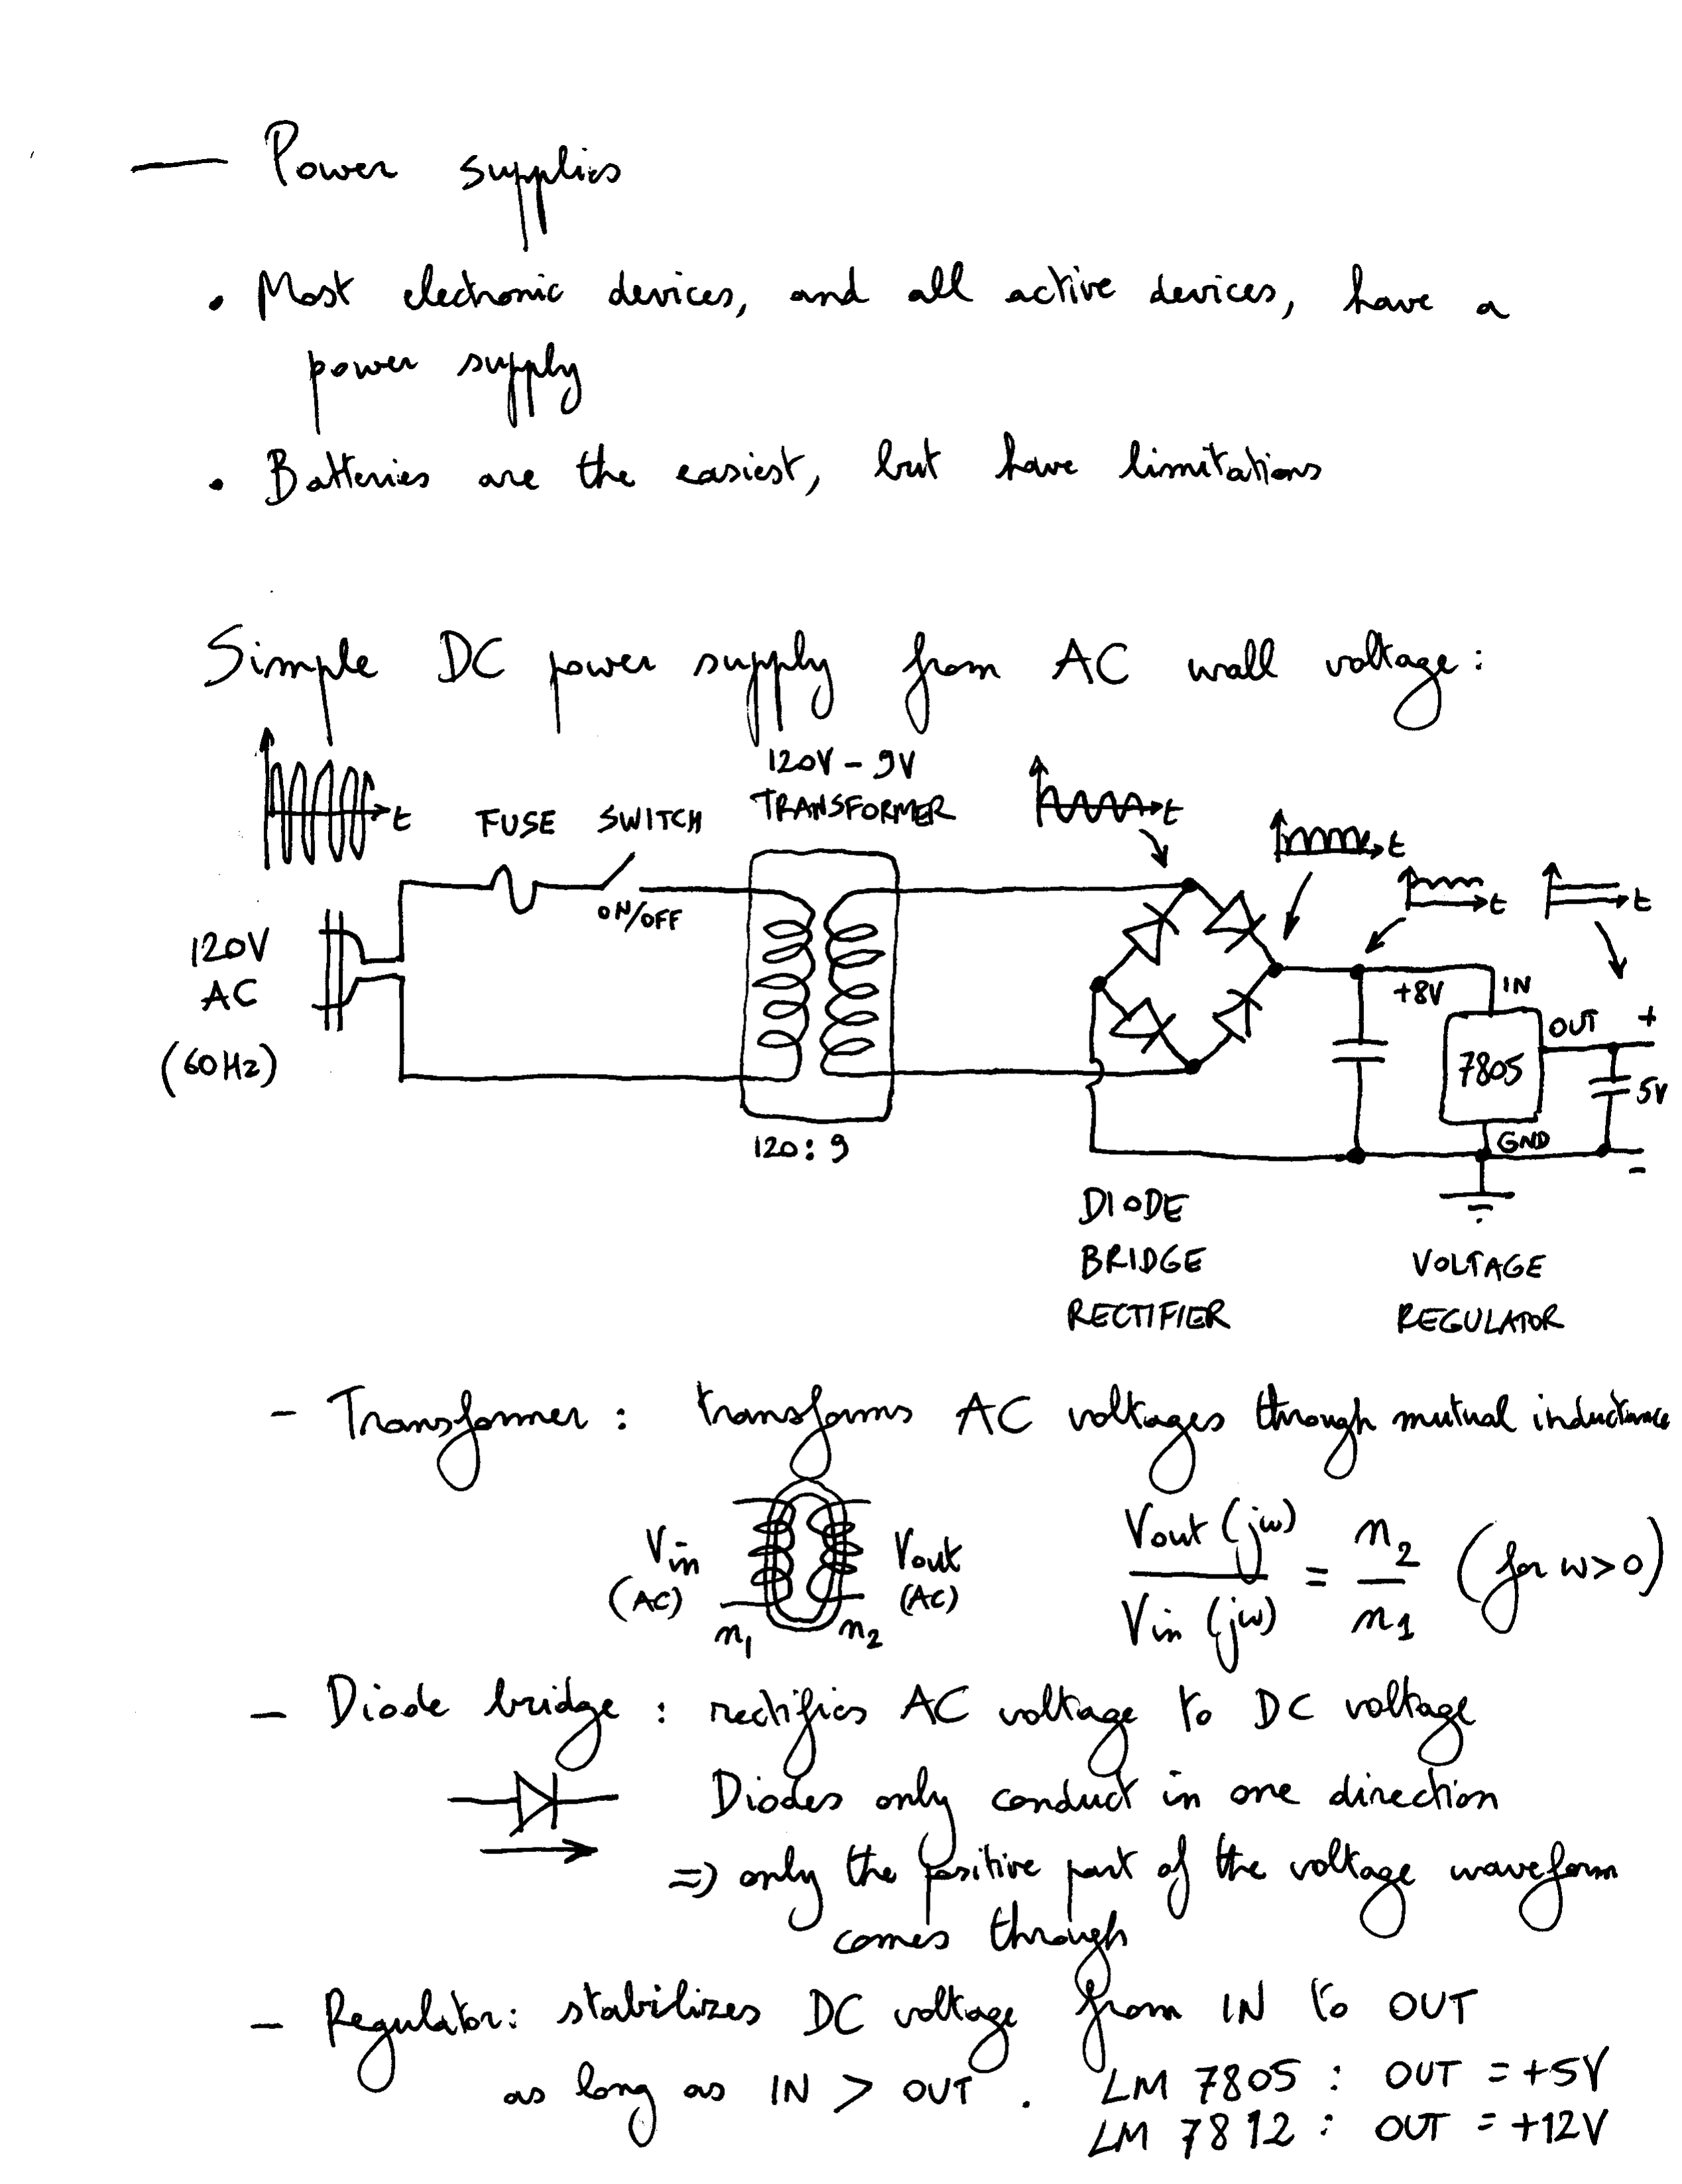 — Power supplies
• Most electronic devices, and all active devices, have a
power supply
• Batteries are the easiest, but have limitations
Simple DC power supply from AC wall voltage:
120V - 9V
TRANSFORMER
t
FUSE
SWITCH
ON/OFF
120V
AC
(60Hz)
120:9
t
t
t
t
+8V
IN
7805
OUT
+
5V
GND
-
DIODE
BRIDGE
RECTIFIER
VOLTAGE
REGULATOR
- Transformer: transforms AC voltages through mutual inductance
Vin
(AC)
n1
n2
Vout
(AC)
Vout (jω) / Vin (jω) = n2 / n1 (for ω>0)
- Diode bridge: rectifies AC voltage to DC voltage
Diodes only conduct in one direction
=> only the positive part of the voltage waveform
comes through
- Regulator: stabilizes DC voltage from IN to OUT
as long as IN > OUT. LM 7805: OUT = +5V
LM 7812: OUT = +12V